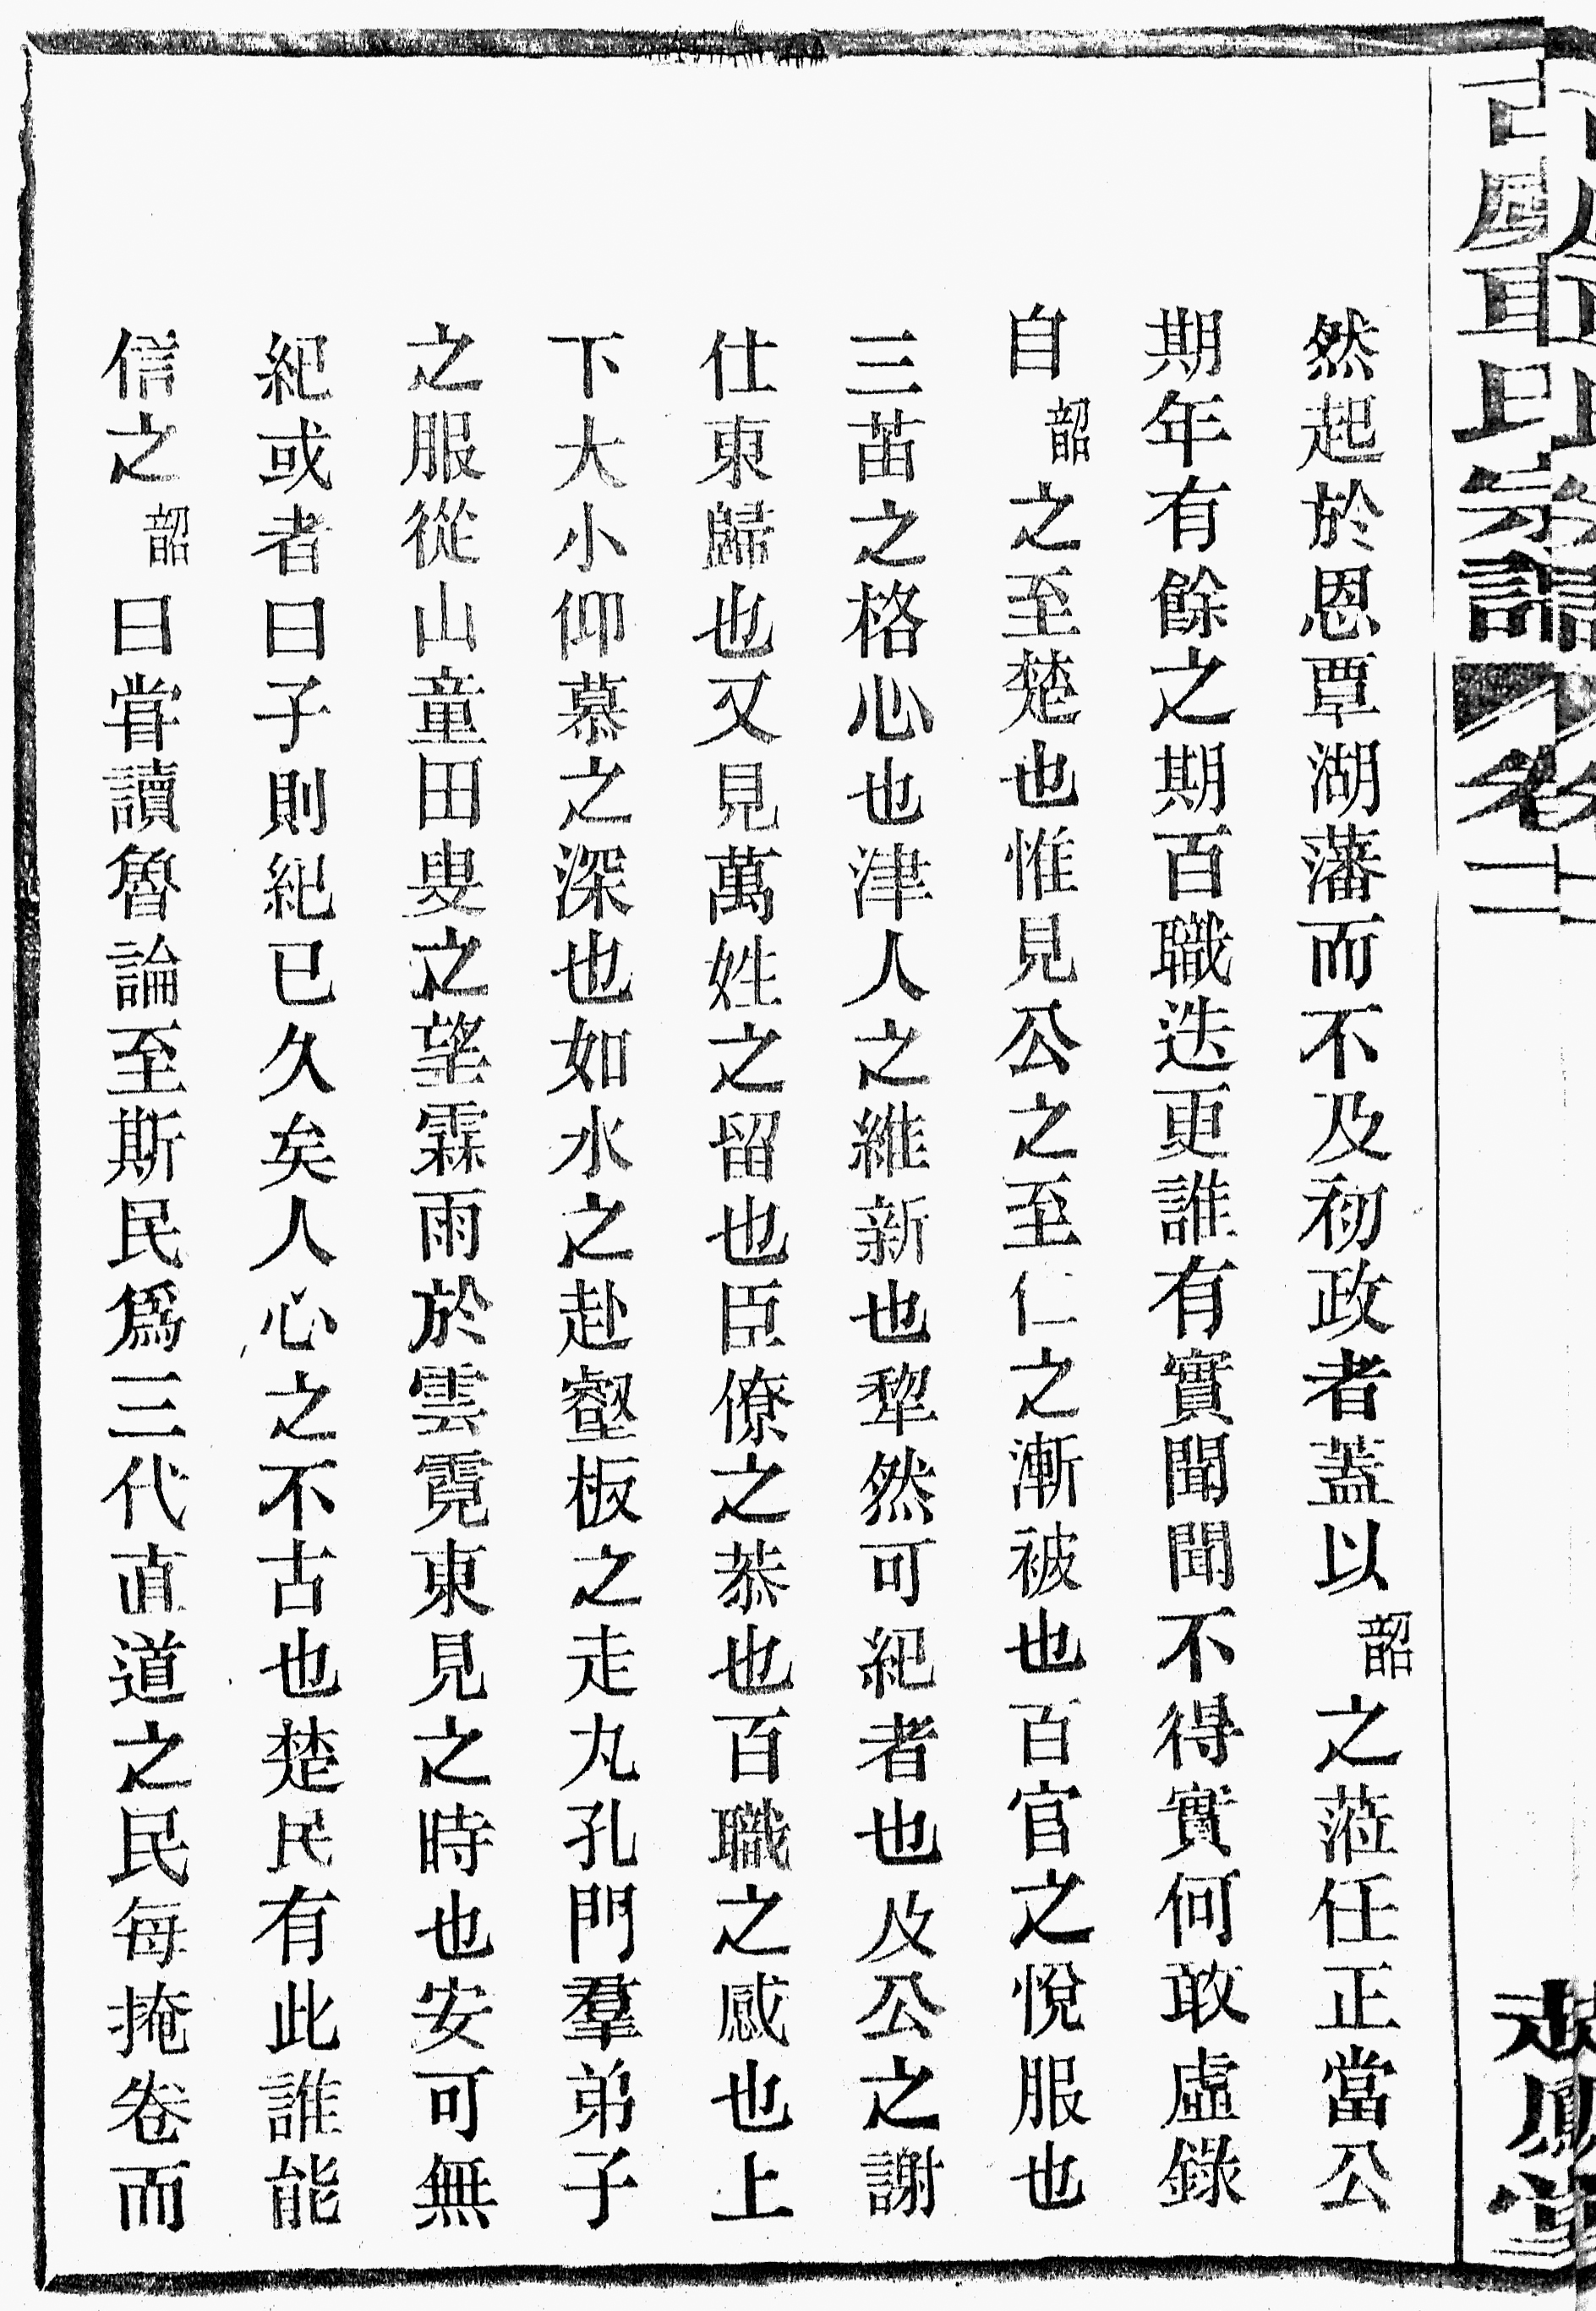 然起於恩覃湖藩而不及初政者蓋以韶之蒞任正當公
期年有餘之期百職迭更誰有實聞聞不得實何敢虛錄
自韶之至楚也惟見公之至仁之漸被也百官之悅服也
三苗之格心也津人之維新也犂然可紀者也及公之謝
仕東歸也又見萬姓之留也臣僚之恭也百職之感也上
下大小仰慕之深也如水之赴壑板之走丸孔門羣弟子
之服從山童田叟之望霖雨於雲霓東見之時也安可無
紀或者曰子則紀已久矣人心之不古也楚民有此誰能
信之韶曰甞讀魯論至斯民爲三代直道之民每掩卷而